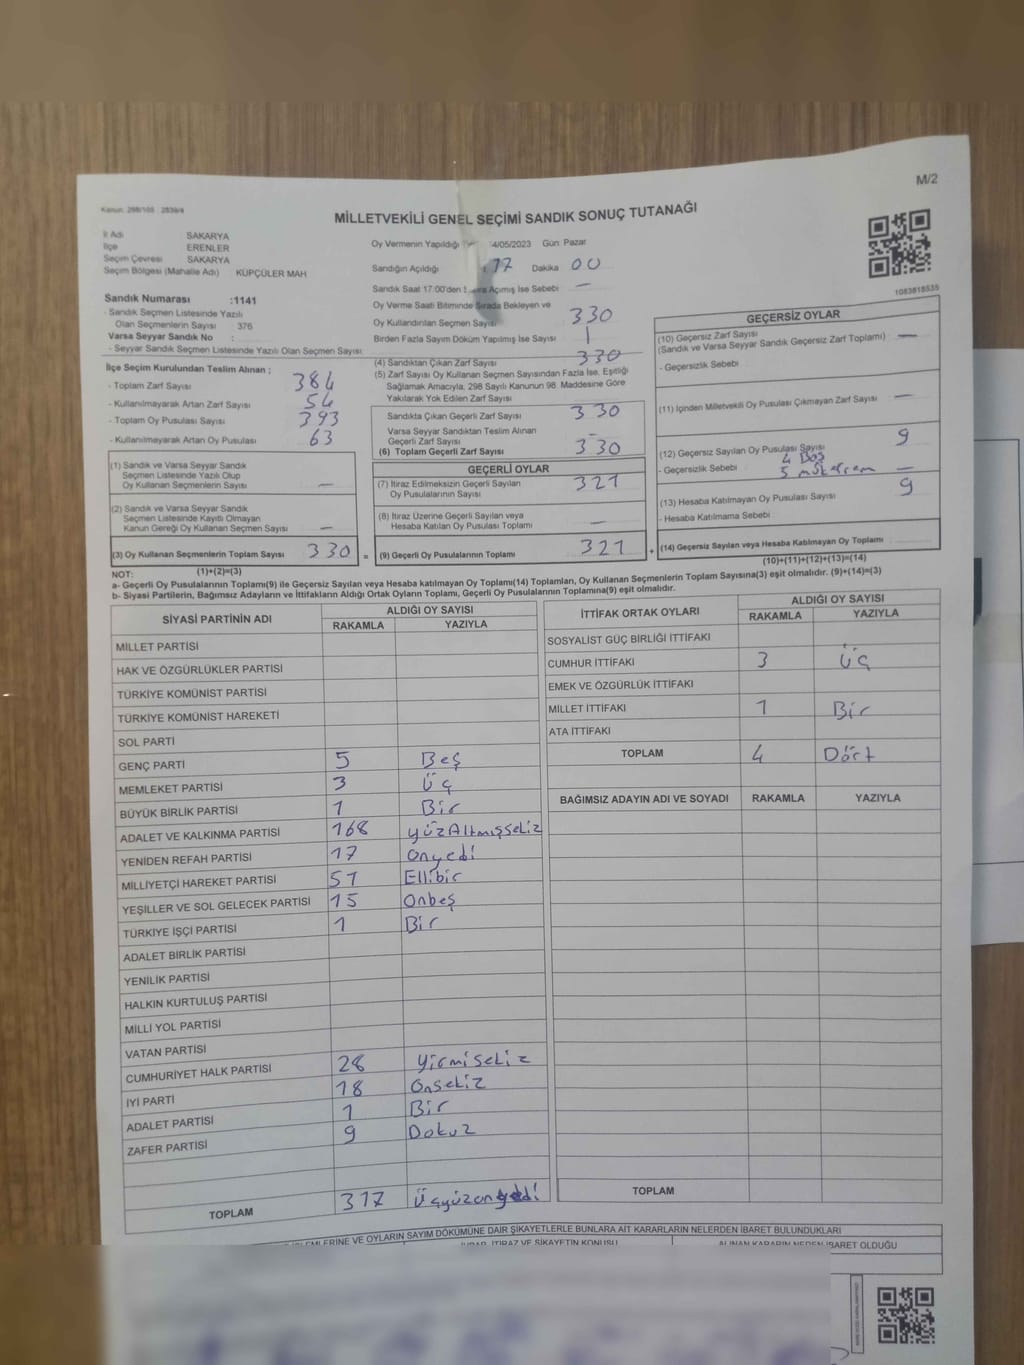 M/2
Kanun: 298/105 : 2839/4
MİLLETVEKİLİ GENEL SEÇİMİ SANDIK SONUÇ TUTANAĞI
İl Adı SAKARYA
İlçe ERENLER
Seçim Çevresi SAKARYA
Seçim Bölgesi (Mahalle Adı) KÜPÇÜLER MAH
Sandık Numarası :1141
- Sandık Seçmen Listesinde Yazılı
Olan Seçmenlerin Sayısı 376
Varsa Seyyar Sandık No :
- Seyyar Sandık Seçmen Listesinde Yazılı Olan Seçmen Sayısı:
İlçe Seçim Kurulundan Teslim Alınan ;
- Toplam Zarf Sayısı 384
- Kullanılmayarak Artan Zarf Sayısı 54
- Toplam Oy Pusulası Sayısı 393
- Kullanılmayarak Artan Oy Pusulası 63
(1) Sandık ve Varsa Seyyar Sandık
Seçmen Listesinde Yazılı Olup
Oy Kullanan Seçmenlerin Sayısı —
(2) Sandık ve Varsa Seyyar Sandık
Seçmen Listesinde Kayıtlı Olmayan
Kanun Gereği Oy Kullanan Seçmen Sayısı —
(3) Oy Kullanan Seçmenlerin Toplam Sayısı 330 =
(1)+(2)=(3)
Oy Vermenin Yapıldığı 4/05/2023 Gün: Pazar
Sandığın Açıldığı : 17 Dakika 00
Sandık Saat 17:00'den Açımış İse Sebebi —
Oy Verme Saati Bitiminde Sırada Bekleyen ve
Oy Kullandırılan Seçmen Sayısı 330
Birden Fazla Sayım Döküm Yapılmış İse Sayısı 1
(4) Sandıktan Çıkan Zarf Sayısı 330
(5) Zarf Sayısı Oy Kullanan Seçmen Sayısından Fazla İse, Eşitliği
Sağlamak Amacıyla, 298 Sayılı Kanunun 98. Maddesine Göre
Yakılarak Yok Edilen Zarf Sayısı
Sandıkta Çıkan Geçerli Zarf Sayısı 330
Varsa Seyyar Sandıktan Teslim Alınan
Geçerli Zarf Sayısı —
(6) Toplam Geçerli Zarf Sayısı 330
GEÇERLİ OYLAR
(7) İtiraz Edilmeksizin Geçerli Sayılan
Oy Pusulalarının Sayısı 321
(8) İtiraz Üzerine Geçerli Sayılan veya
Hesaba Katılan Oy Pusulası Toplamı —
(9) Geçerli Oy Pusulalarının Toplamı 321 +
1083818535
GEÇERSİZ OYLAR
(10) Geçersiz Zarf Sayısı
(Sandık ve Varsa Seyyar Sandık Geçersiz Zarf Toplamı) —
- Geçersizlik Sebebi
(11) İçinden Milletvekili Oy Pusulası Çıkmayan Zarf Sayısı —
(12) Geçersiz Sayılan Oy Pusulası Sayısı 9
4 Boş
- Geçersizlik Sebebi 5 mükerrem
(13) Hesaba Katılmayan Oy Pusulası Sayısı —
9
- Hesaba Katılmama Sebebi
(14) Geçersiz Sayılan veya Hesaba Katılmayan Oy Toplamı
(10)+(11)+(12)+(13)=(14)
NOT:
a- Geçerli Oy Pusulalarının Toplamı(9) ile Geçersiz Sayılan veya Hesaba katılmayan Oy Toplamı(14) Toplamları, Oy Kullanan Seçmenlerin Toplam Sayısına(3) eşit olmalıdır. (9)+(14)=(3)
b- Siyasi Partilerin, Bağımsız Adayların ve İttifakların Aldığı Ortak Oyların Toplamı, Geçerli Oy Pusulalarının Toplamına(9) eşit olmalıdır.
SİYASİ PARTİNİN ADI ALDIĞI OY SAYISI
RAKAMLA YAZIYLA
MİLLET PARTİSİ
HAK VE ÖZGÜRLÜKLER PARTİSİ
TÜRKİYE KOMÜNİST PARTİSİ
TÜRKİYE KOMÜNİST HAREKETİ
SOL PARTİ
GENÇ PARTİ 5 Beş
MEMLEKET PARTİSİ 3 Üç
BÜYÜK BİRLİK PARTİSİ 1 Bir
ADALET VE KALKINMA PARTİSİ 168 yüzAltmışSekiz
YENİDEN REFAH PARTİSİ 17 Onyedi
MİLLİYETÇİ HAREKET PARTİSİ 51 Ellibir
YEŞİLLER VE SOL GELECEK PARTİSİ 15 Onbeş
TÜRKİYE İŞÇİ PARTİSİ 1 Bir
ADALET BİRLİK PARTİSİ
YENİLİK PARTİSİ
HALKIN KURTULUŞ PARTİSİ
MİLLİ YOL PARTİSİ
VATAN PARTİSİ
CUMHURİYET HALK PARTİSİ 28 YirmiSekiz
İYİ PARTİ 18 OnSekiz
ADALET PARTİSİ 1 Bir
ZAFER PARTİSİ 9 Dokuz
TOPLAM 317 Üçyüzonyedi
İTTİFAK ORTAK OYLARI ALDIĞI OY SAYISI
RAKAMLA YAZIYLA
SOSYALİST GÜÇ BİRLİĞİ İTTİFAKI
CUMHUR İTTİFAKI 3 Üç
EMEK VE ÖZGÜRLÜK İTTİFAKI
MİLLET İTTİFAKI 1 Bir
ATA İTTİFAKI
TOPLAM 4 Dört
BAĞIMSIZ ADAYIN ADI VE SOYADI RAKAMLA YAZIYLA
TOPLAM
İŞLEMLERİNE VE OYLARIN SAYIM DÖKÜMÜNE DAİR ŞİKAYETLERLE BUNLARA AİT KARARLARIN NELERDEN İBARET BULUNDUKLARI
İTİRAZ VE ŞİKAYETİN KONUSU ALINAN KARARIN NEDEN İBARET OLDUĞU